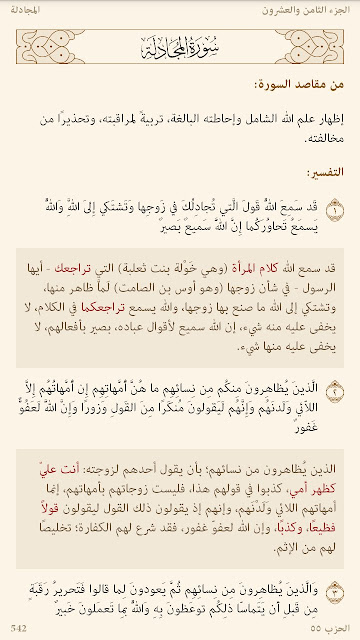 الجزء الثامن والعشرون المجادلة
سُورَةُ المُجَادلَة
من مقاصد السورة:
إظهار علم الله الشامل وإحاطته البالغة، تربيةً لمراقبته، وتحذيرًا من
مخالفته.
التفسير:
١ قَد سَمِعَ اللَّهُ قَولَ الَّتي تُجادِلُكَ في زَوجِها وَتَشتَكي إِلَى اللَّهِ وَاللَّهُ
يَسمَعُ تَحاوُرَكُما إِنَّ اللَّهَ سَميعٌ بَصيرٌ
قد سمع الله كلام المرأة (وهي خَوْلة بنت ثعلبة) التي تراجعك - أيها
الرسول - في شأن زوجها (وهو أوس بن الصامت) لَما ظاهر منها،
وتشتكي إلى الله ما صنع بها زوجها، والله يسمع تراجعكما في الكلام، لا
يخفى عليه منه شيء، إن الله سميع لأقوال عباده، بصير بأفعالهم، لا
يخفى عليه منها شيء.
٢ الَّذينَ يُظاهِرونَ مِنكُم مِن نِسائِهِم ما هُنَّ أُمَّهاتِهِم إِن أُمَّهاتُهُم إِلَّا
اللّائي وَلَدنَهُم وَإِنَّهُم لَيَقولونَ مُنكَرًا مِنَ القَولِ وَزورًا وَإِنَّ اللَّهَ لَعَفُوٌّ
غَفورٌ
الذين يُظاهرون من نسائهم؛ بأن يقول أحدهم لزوجته: أنت عليّ
كظهر أمي، كذبوا في قولهم هذا، فليست زوجاتهم بأمهاتهم، إنما
أمهاتهم اللائي ولَدْنَهم، وإنهم إذ يقولون ذلك القول ليقولون قولًا
فظيعًا، وكذبًا، وإن الله لعفوّ غفور، فقد شرع لهم الكفارة؛ تخليصًا
لهم من الإثم.
٣ وَالَّذينَ يُظاهِرونَ مِن نِسائِهِم ثُمَّ يَعودونَ لِما قالوا فَتَحريرُ رَقَبَةٍ
مِن قَبلِ أَن يَتَماسّا ذلِكُم توعَظونَ بِهِ وَاللَّهُ بِما تَعمَلونَ خَبيرٌ
الحزب ٥٥ 542